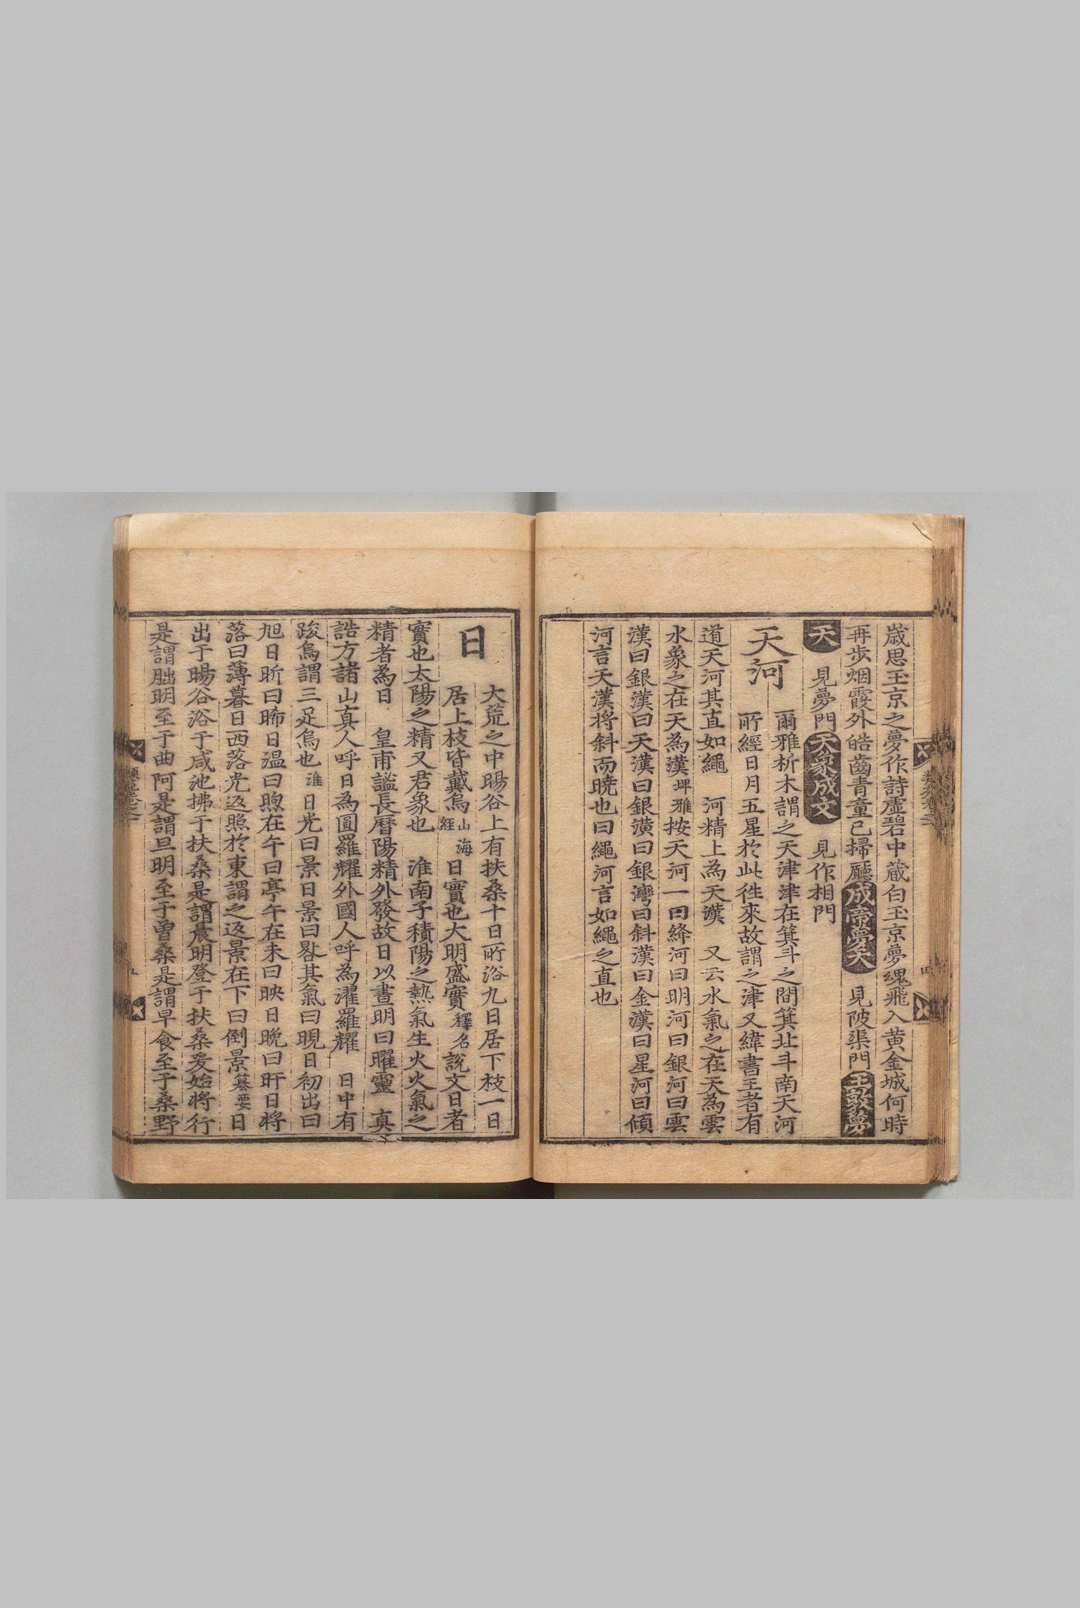 歳思玉京之夢作詩虛碧中蔵白玉京夢魂飛入黄金城何時
再歩烟霞外皓齒青童已掃廳 成帝夢天 見陂渠門 王敦夢
天 見夢門 天象成文 見作相門
天河
爾雅析木謂之天津津在箕斗之間箕北斗南天河
所經日月五星於此徃來故謂之津又緯書王者有
道天河其直如繩 河精上為天漢 又云水氣之在天為雲
水象之在天為漢埤雅按天河一曰絳河曰明河曰銀河曰雲
漢曰銀漢曰天漢曰銀潢曰銀灣曰斜漢曰金漢曰星河曰傾
河言天漢将斜而曉也曰繩河言如繩之直也
日
大荒之中暘谷上有扶桑十日所浴九日居下枝一日
居上枝皆戴烏山海經 日實也大明盛實釋名說文日者
實也太陽之精又君象也 淮南子積陽之熱氣生火火氣之
精者為日 皇甫謐長曆陽精外發故日以晝明曰曜靈 真
誥方諸山真人呼日為圓羅耀外國人呼為濯羅耀 日中有
踆烏謂三足烏也淮 日光曰景日景曰晷其氣曰晛日初出曰
旭日昕曰晞日温曰煦在午曰亭午在未曰昳日晚曰旰日将
落曰薄暮日西落光返照於東謂之返景在下曰倒景纂要 日
出于暘谷浴于咸池拂于扶桑是謂晨明登于扶桑爰始将行
是謂朏明至于曲阿是謂旦明至于曾桑是謂早食至于桑野